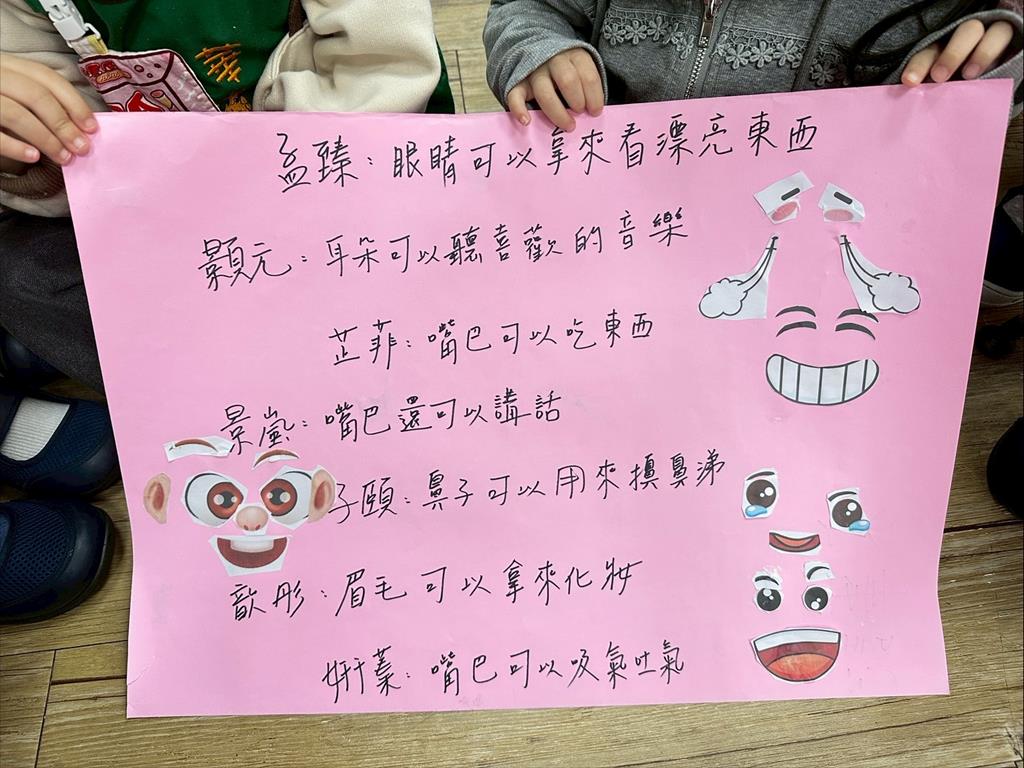 孟臻：眼睛可以拿來看漂亮東西
顥元：耳朵可以聽喜歡的音樂
芷菲：嘴巴可以吃東西
景嵐：嘴巴還可以講話
子頤：鼻子可以用來擤鼻涕
歆彤：眉毛可以拿來化妝
妍蓁：嘴巴可以吸氣吐氣